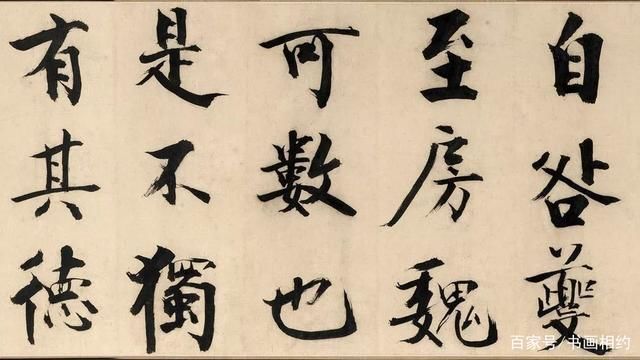 自咎夔
至房魏
可數也
是不獨
有其德
百家号/书画相约